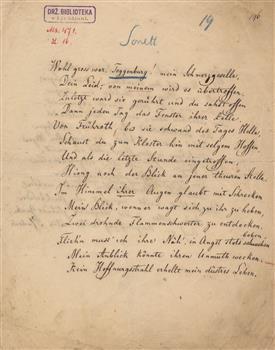 DRŽ. BIBLIOTEKA
v Ljubljani.
19
Sonett
Wohl gross war, Toggenburg! mein Schmerzgeselle,
Dein Leid; von meinem wird es übertroffen.
Zuletzt ward sie gerührt und du sahst offen
Dann jeden Tag das Fenster ihrer Zelle.
Von Frühroth, bis sie schwand des Tages Helle,
Schaust du zum Kloster hin mit selgem Hoffen
Und als die letzte Stunde eingetroffen
Hieng noch der Blick an jener theuren Stelle.
Im Himmel ihrer Augen glaubt mit Schrecken
Mein Blick, wenn er wagt sich zu ihr zu heben,
Zwei drohnde Flammenschwerter zu entdecken.
Fliehn muss ich ihre Näh', in Angst stets beben,
Mein Anblick könnte ihren Unmuth wecken.
Kein Hoffnungsstrahl erhellt mein düstres Leben.